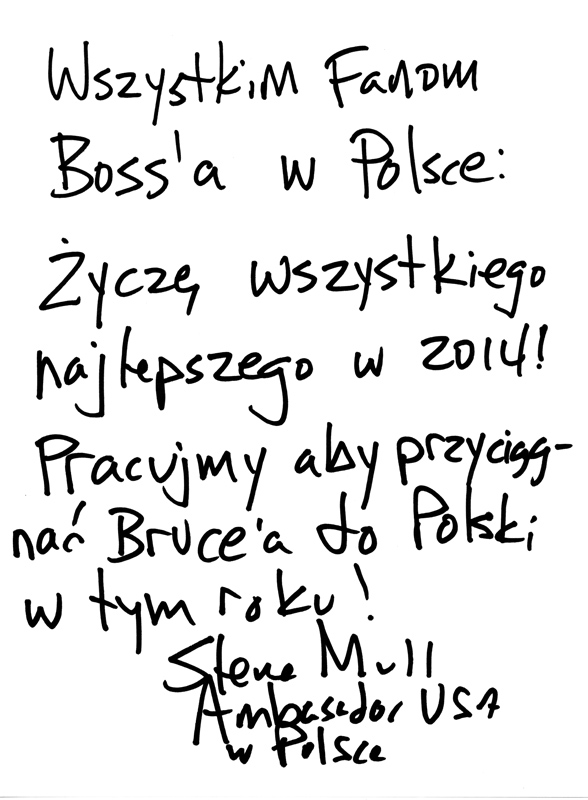 Wszystkim Fanom
Boss'a w Polsce:
Życzę wszystkiego
najlepszego w 2014!
Pracujmy aby przyciąg-
nać Bruce'a do Polski
w tym roku!
Steve Mull
Ambasador USA
w Polsce